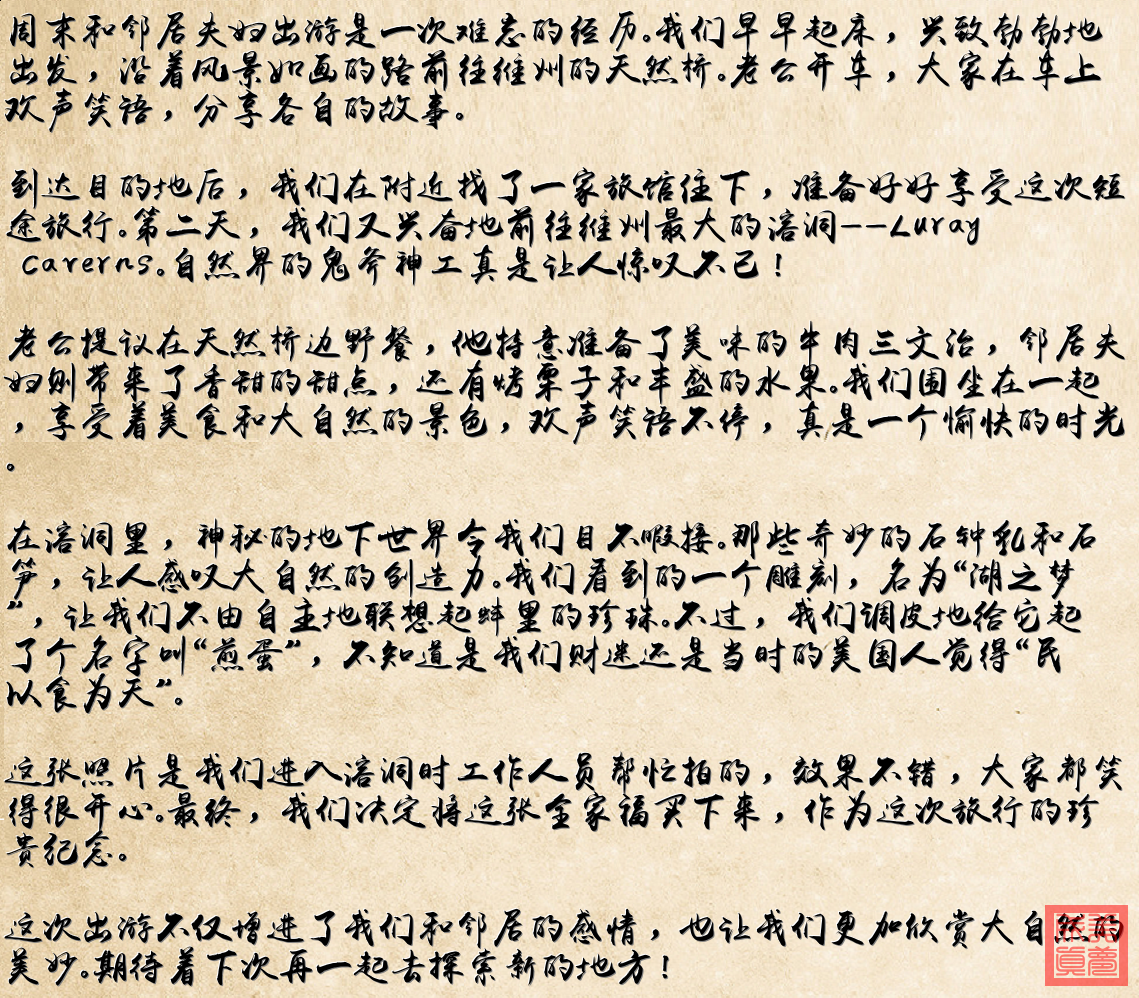 周末和邻居夫妇出游是一次难忘的经历。我们早早起床，兴致勃勃地
出发，沿着风景如画的路前往维州的天然桥。老公开车，大家在车上
欢声笑语，分享各自的故事。
到达目的地后，我们在附近找了一家旅馆住下，准备好好享受这次短
途旅行。第二天，我们又兴奋地前往维州最大的溶洞--Luray
Caverns。自然界的鬼斧神工真是让人惊叹不已！
老公提议在天然桥边野餐，他特意准备了美味的牛肉三文治，邻居夫
妇则带来了香甜的甜点，还有烤栗子和丰盛的水果。我们围坐在一起
，享受着美食和大自然的景色，欢声笑语不停，真是一个愉快的时光
。
在溶洞里，神秘的地下世界令我们目不暇接。那些奇妙的石钟乳和石
笋，让人感叹大自然的创造力。我们看到的一个雕刻，名为“湖之梦
”，让我们不由自主地联想起蚌里的珍珠。不过，我们调皮地给它起
了个名字叫“煎蛋”，不知道是我们财迷还是当时的美国人觉得“民
以食为天”。
这张照片是我们进入溶洞时工作人员帮忙拍的，效果不错，大家都笑
得很开心。最终，我们决定将这张全家福买下来，作为这次旅行的珍
贵纪念。
这次出游不仅增进了我们和邻居的感情，也让我们更加欣赏大自然的
美妙。期待着下次再一起去探索新的地方！